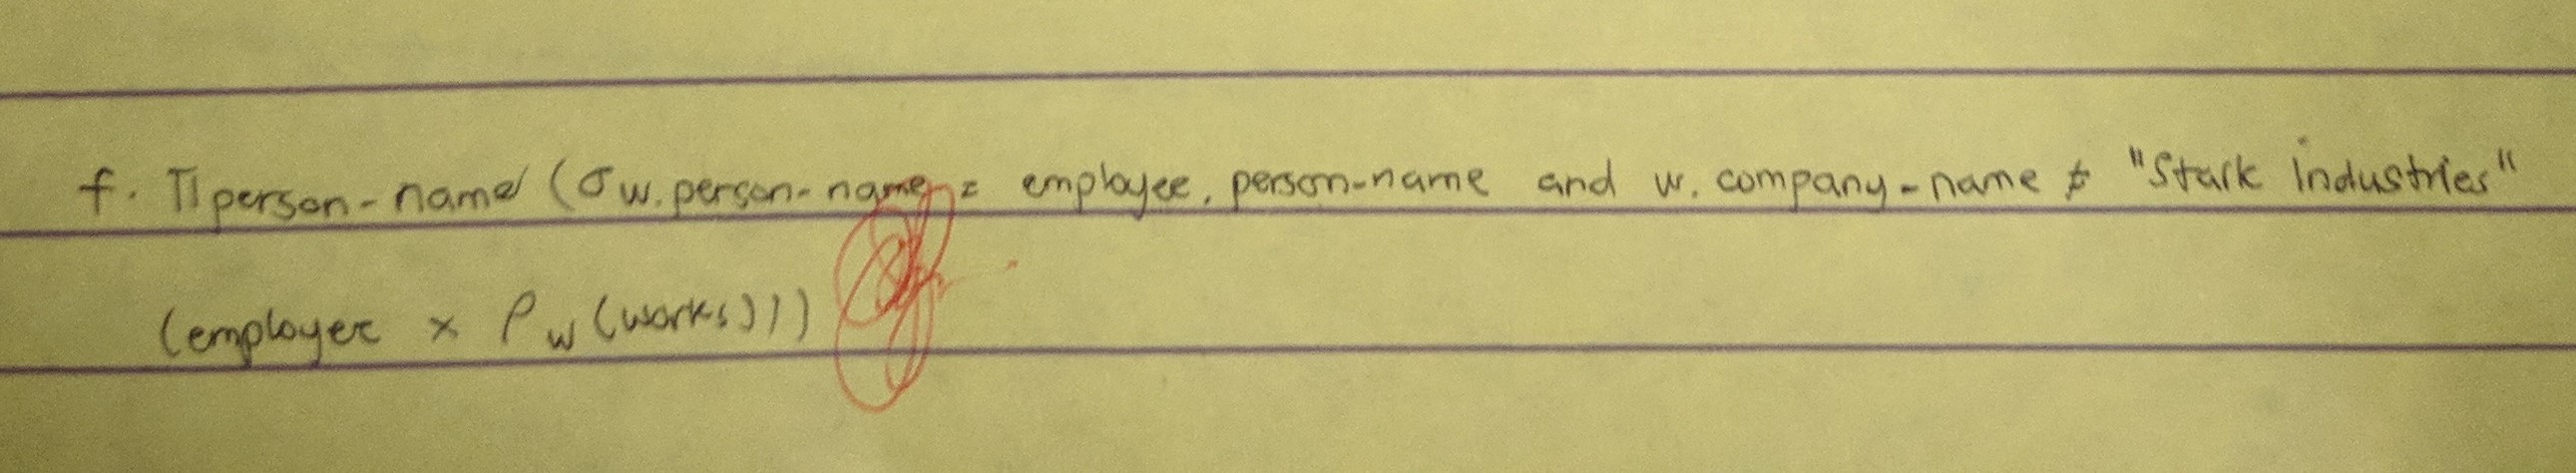 f. Π person-name (σ w.person-name = employee.person-name and w.company-name ≠ "Stark industries"
(employee × ρ w (works)))